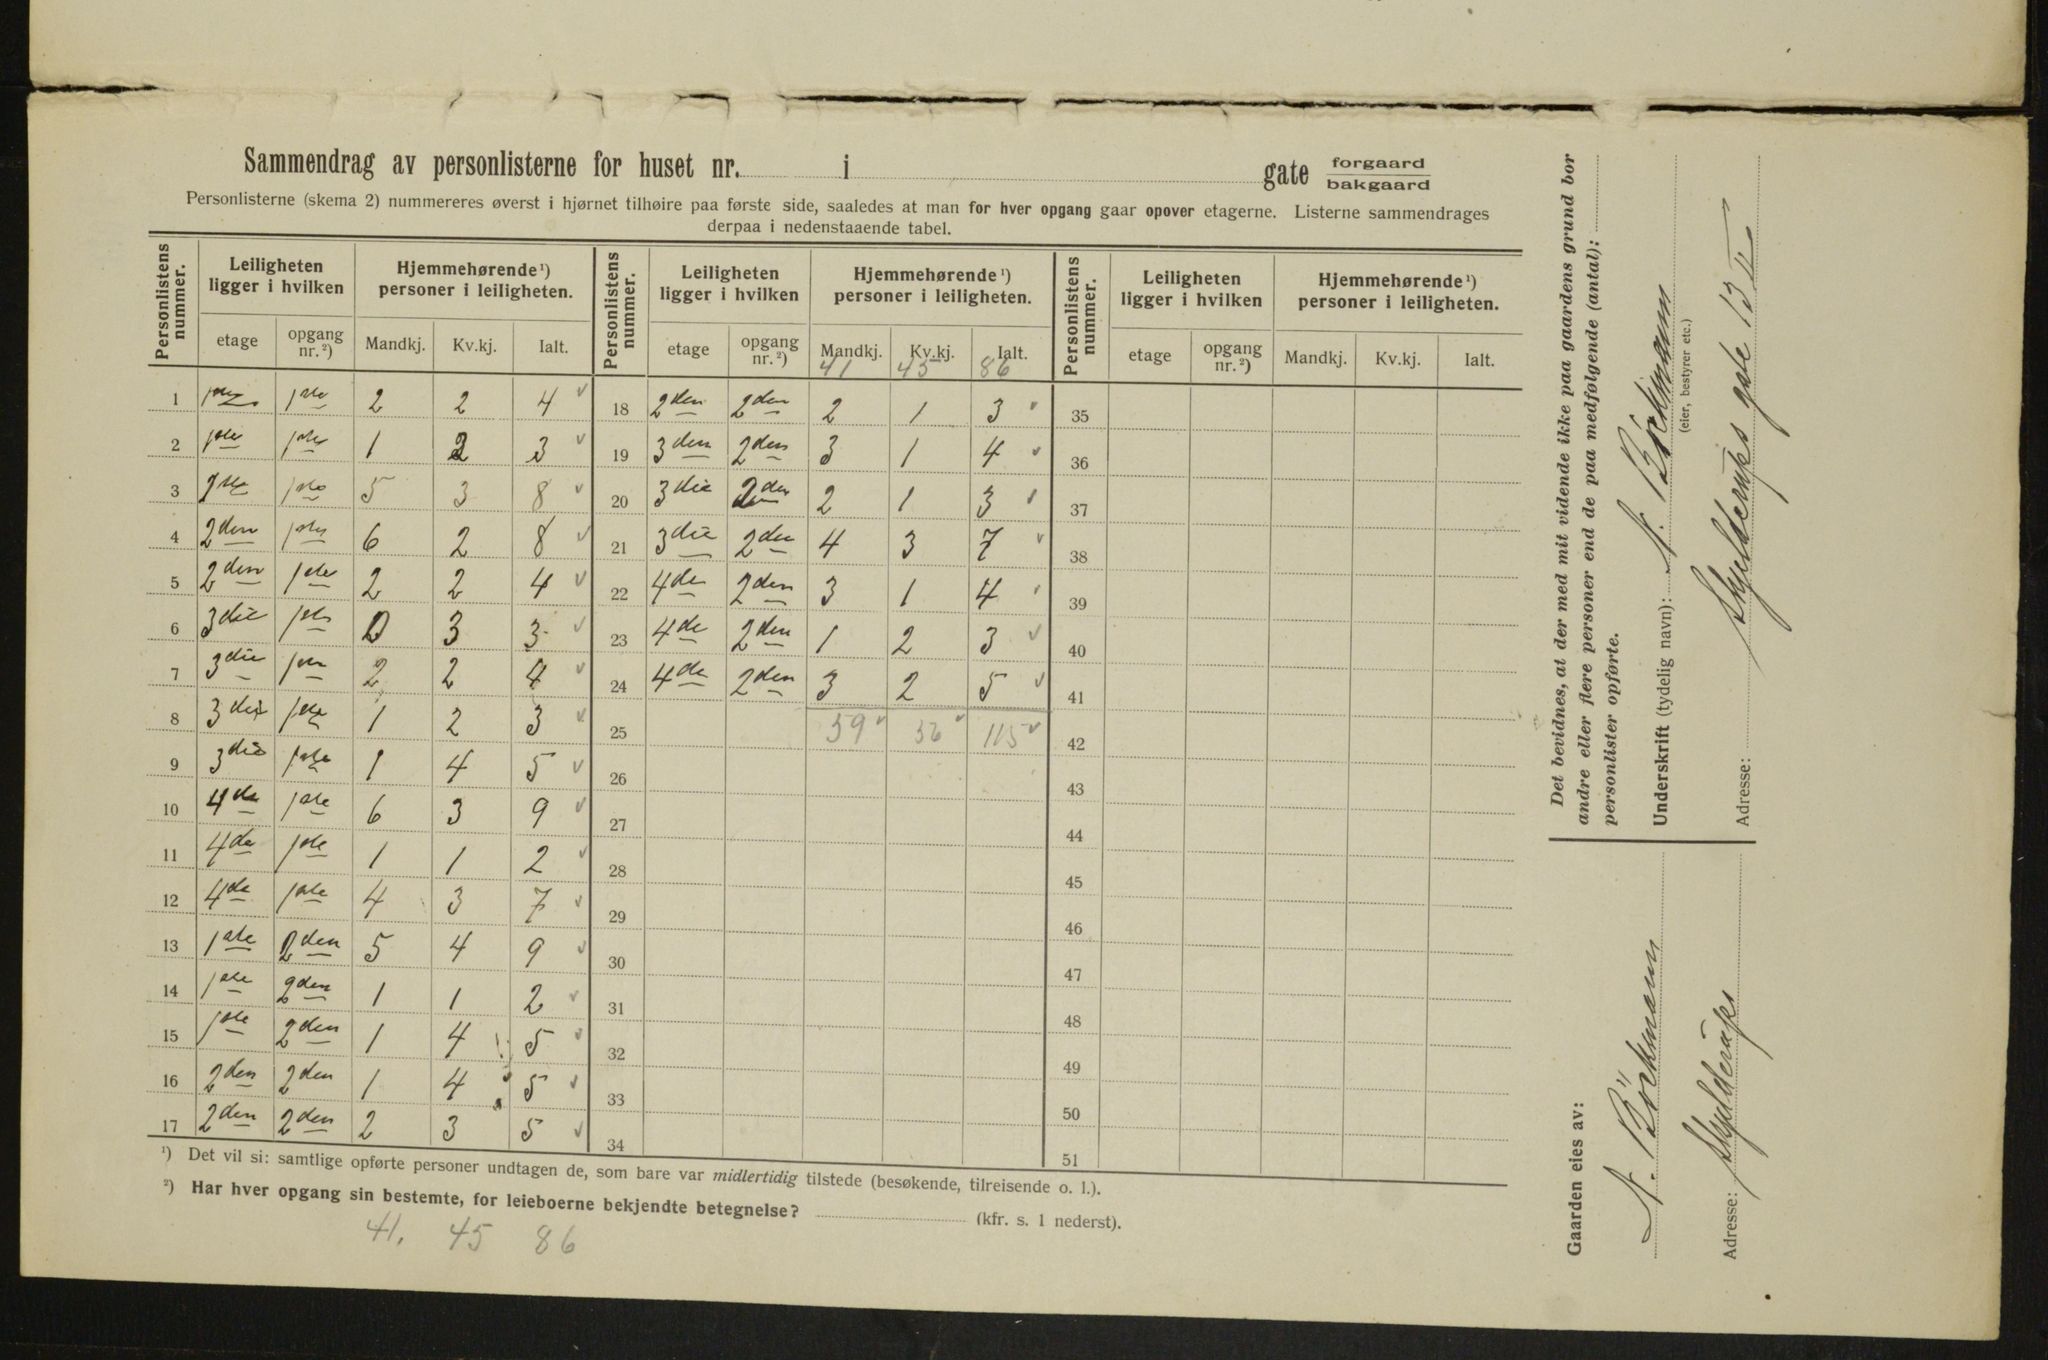 Sammendrag av personlisterne for huset nr. i gate forgaard bakgaard
Personlisterne (skema 2) nummereres øverst i hjørnet tilhøire paa første side, saaledes at man for hver opgang gaar opover etagerne. Listerne sammendrages
derpaa i nedenstaaende tabel.
Personlistens nummer. Leiligheten ligger i hvilken Hjemmehørende ¹) personer i leiligheten. Personlistens nummer. Leiligheten ligger i hvilken Hjemmehørende ¹) personer i leiligheten. Personlistens nummer. Leiligheten ligger i hvilken Hjemmehørende ¹) personer i leiligheten.
etage opgang nr.²) Mandkj. Kv.kj. Ialt. etage opgang nr.²) Mandkj. Kv.kj. Ialt. etage opgang nr.²) Mandkj. Kv.kj. Ialt.
41 45 86
1 1ste 1ste 2 2 4 18 2den 2den 2 1 3 35
2 1ste 1ste 1 2 3 19 3den 2den 3 1 4 36
3 1ste 5 3 8 20 3die 2den 2 1 3 37
4 2den 1ste 6 2 8 21 3die 2den 4 3 7 38
5 2den 1ste 2 2 4 22 4de 2den 3 1 4 39
6 3die 1ste 0 3 3 23 4de 2den 1 2 3 40
7 3die 1ste 2 2 4 24 4de 2den 3 2 5 41
8 3die 1ste 1 2 3 25 59 56 115 42
9 3die 1ste 1 4 5 26 43
10 4de 1ste 6 3 9 27 44
11 4de 1ste 1 1 2 28 45
12 4de 1ste 4 3 7 29 46
13 1ste 2den 5 4 9 30 47
14 1ste 2den 1 1 2 31 48
15 1ste 2den 1 4 5 32 49
16 2den 2den 1 4 5 33 50
17 2den 2den 2 3 5 34 51
¹) Det vil si: samtlige opførte personer undtagen de, som bare var midlertidig tilstede (besøkende, tilreisende o. l.).
²) Har hver opgang sin bestemte, for leieboerne bekjendte betegnelse? (kfr. s. 1 nederst).
41. 45 86
Det bevidnes, at der med mit vidende ikke paa gaardens grund bor
andre eller flere personer end de paa medfølgende (antal):
personlister opførte.
Underskrift (tydelig navn): N. Böckmann
(eier, bestyrer etc.)
Adresse: Skjelderups gate 13 II
Gaarden eies av:
N. Böckmann
Adresse: Skjelderups